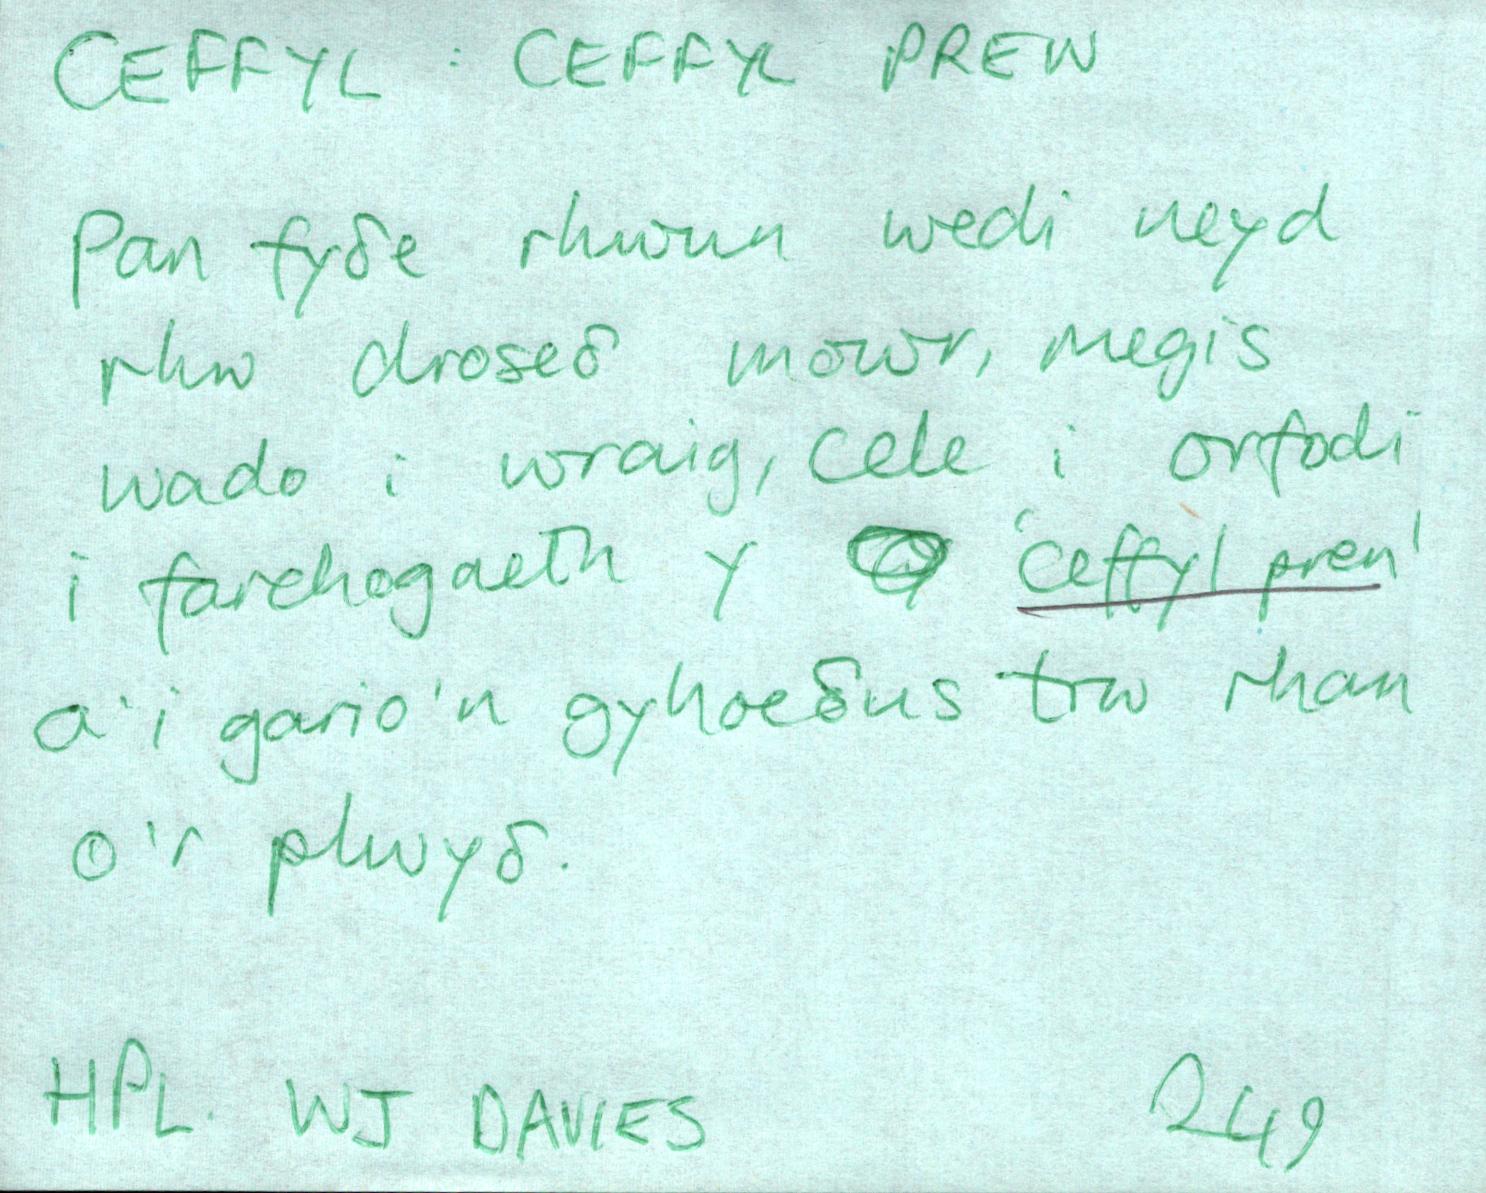 CEFFYL : CEFFYL PREN
Pan fyδe rhwun wedi neyd
rhw droseδ mowr, megis
wado i wraig, cele i orfodi
i farchogaeth y 'ceffyl pren'
a'i gario'n gyhoeδus trw rhan
o'r plwyδ.
HPL. WJ DAVIES 249